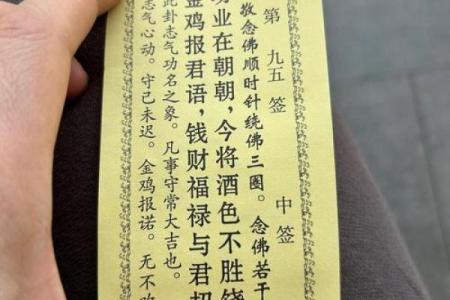 第九五签 中签
敬念佛顺时针绕佛三圈。念佛若干
业在朝朝，今将酒色不胜饶
金鸡报君语，钱财福禄与君招
此卦志气功名之象。凡事守常大吉也。
志气心动。守己未迟。金鸡报诺。无不